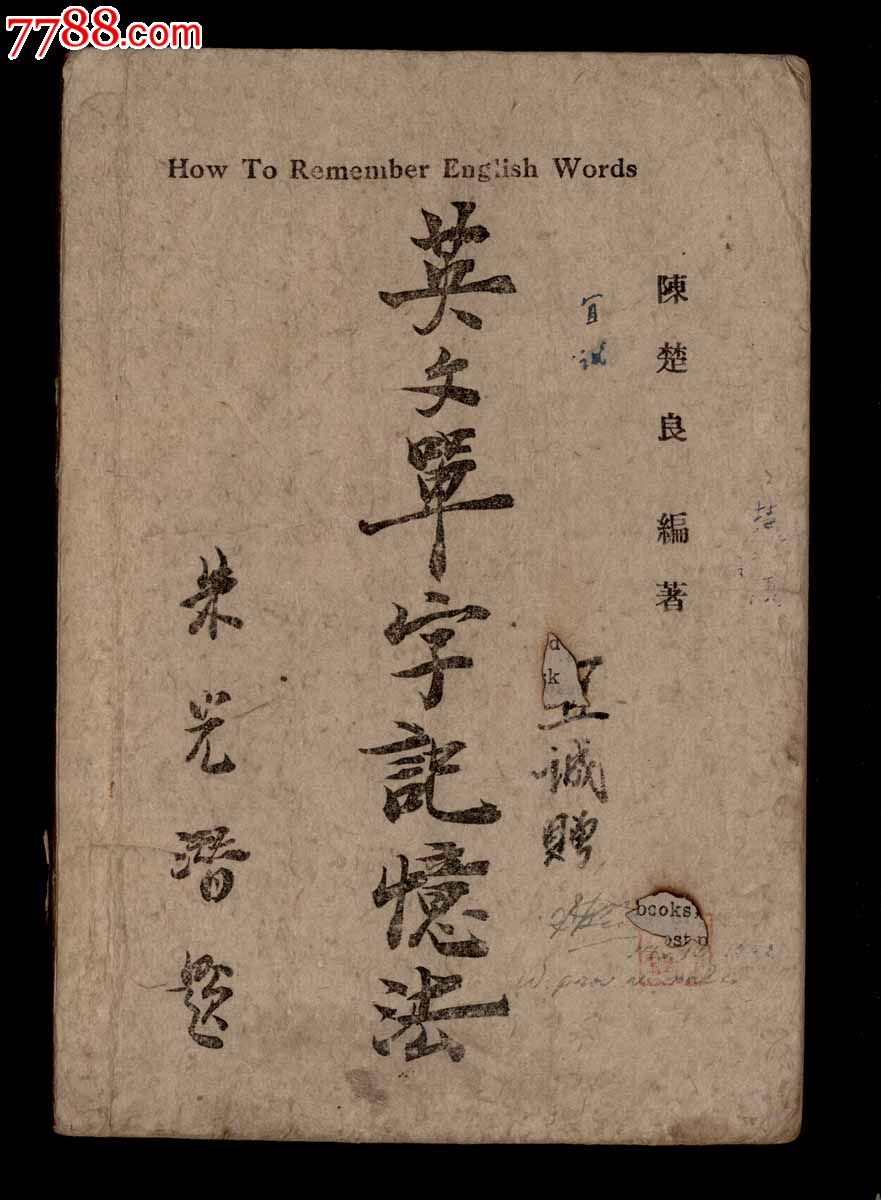 7788.com
How To Remember English Words
陳楚良 編著
宜誠
宜誠贈
英文單字記憶法
朱光潛題
d
k
books
ost p